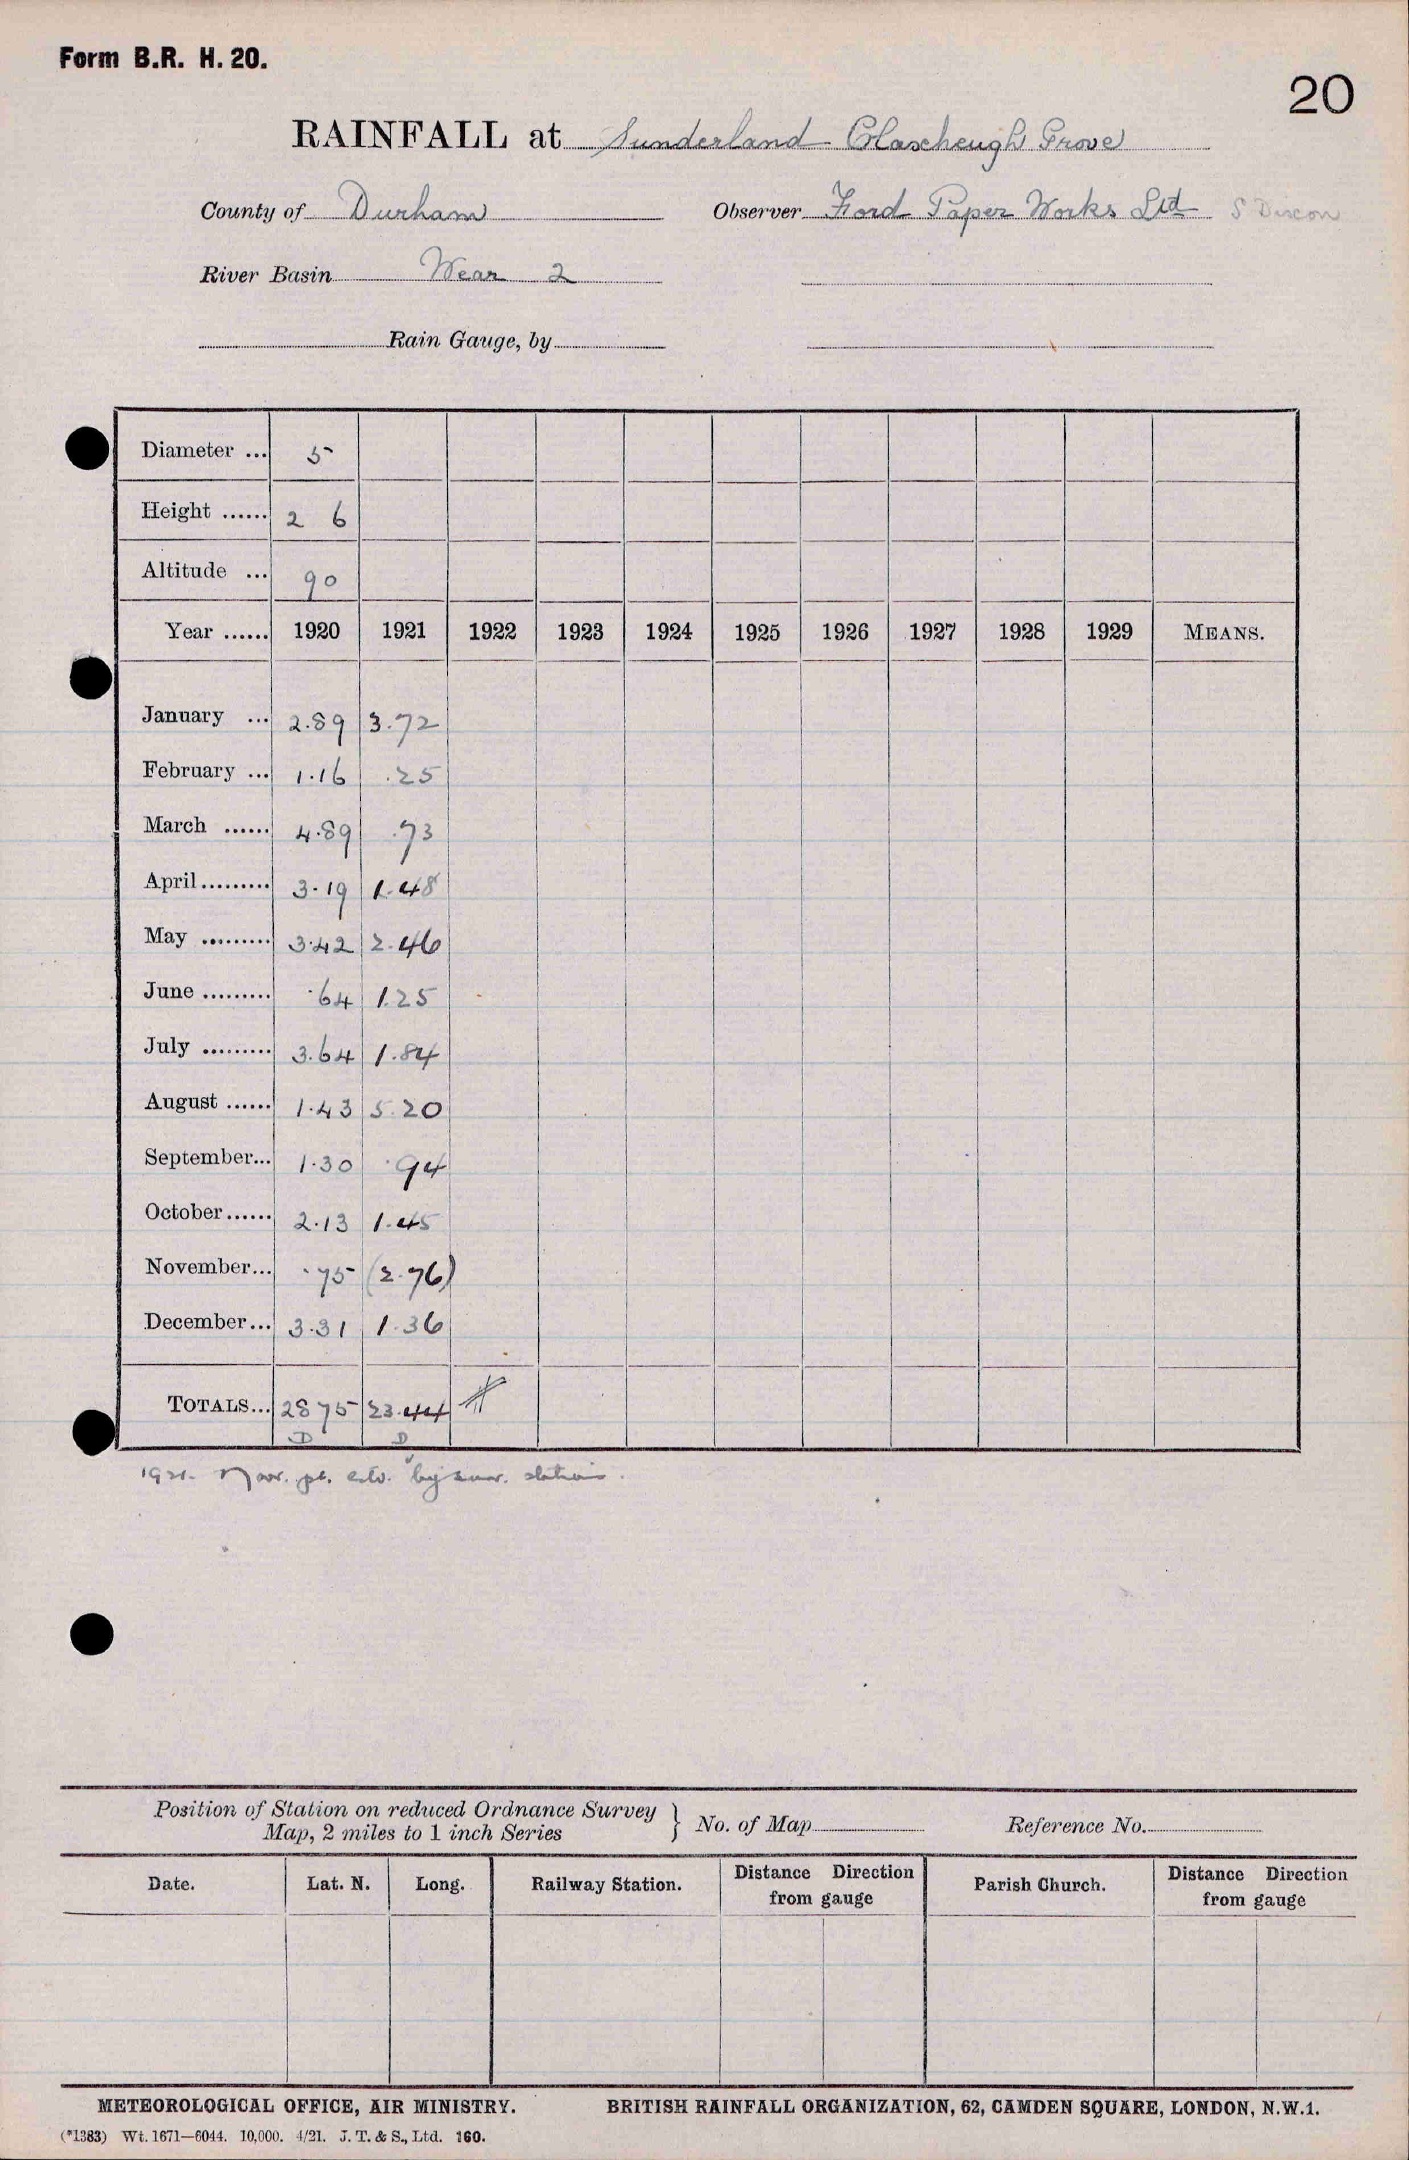 Form B.R. H. 20.
20
RAINFALL at Sunderland Claxheugh Grove
County of Durham Observer Ford Paper Works Ltd S Discon
River Basin Wear 2
Rain Gauge, by
Diameter ... 5
Height ...... 2 6
Altitude ... 90
Year ...... 1920 1921 1922 1923 1924 1925 1926 1927 1928 1929 MEANS.
January ... 2.89 3.72
February ... 1.16 .25
March ...... 4.89 .73
April......... 3.19 1.48
May ......... 3.42 2.46
June ......... .64 1.25
July ......... 3.64 1.84
August ...... 1.43 5.20
September... 1.30 .94
October...... 2.13 1.45
November... .75 (2.76)
December... 3.31 1.36
TOTALS... 28 75 23.44
D D
1921. Nov. pt. est. by surr. stations.
Position of Station on reduced Ordnance Survey
Map, 2 miles to 1 inch Series } No. of Map Reference No.
Date. Lat. N. Long. Railway Station. Distance Direction from gauge Parish Church. Distance Direction from gauge
METEOROLOGICAL OFFICE, AIR MINISTRY. BRITISH RAINFALL ORGANIZATION, 62, CAMDEN SQUARE, LONDON, N.W.1.
(*1383) Wt. 1671—6044. 10,000. 4/21. J. T. & S., Ltd. 160.